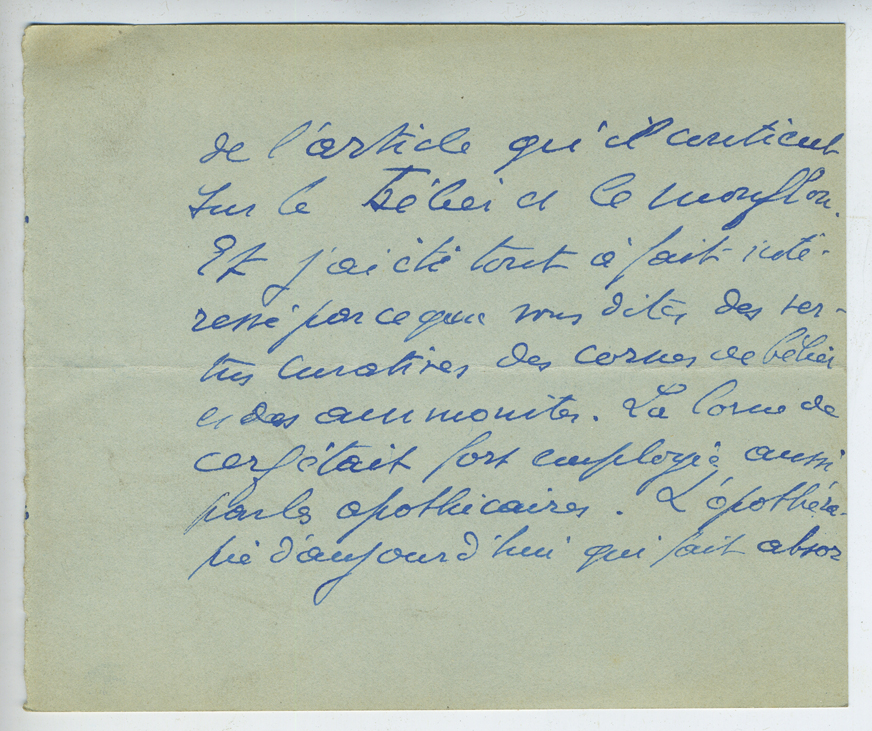 de l'article qu'il contient
sur le Bélier et le mouflon.
Et j'ai été tout à fait inté-
ressé par ce que vous dites des ver-
tus curatives des cornes de bélier
et des ammonites. La corne de
cerf était fort employée aussi
par les apothicaires. L'opothéra-
pie d'aujourd'hui qui fait absor